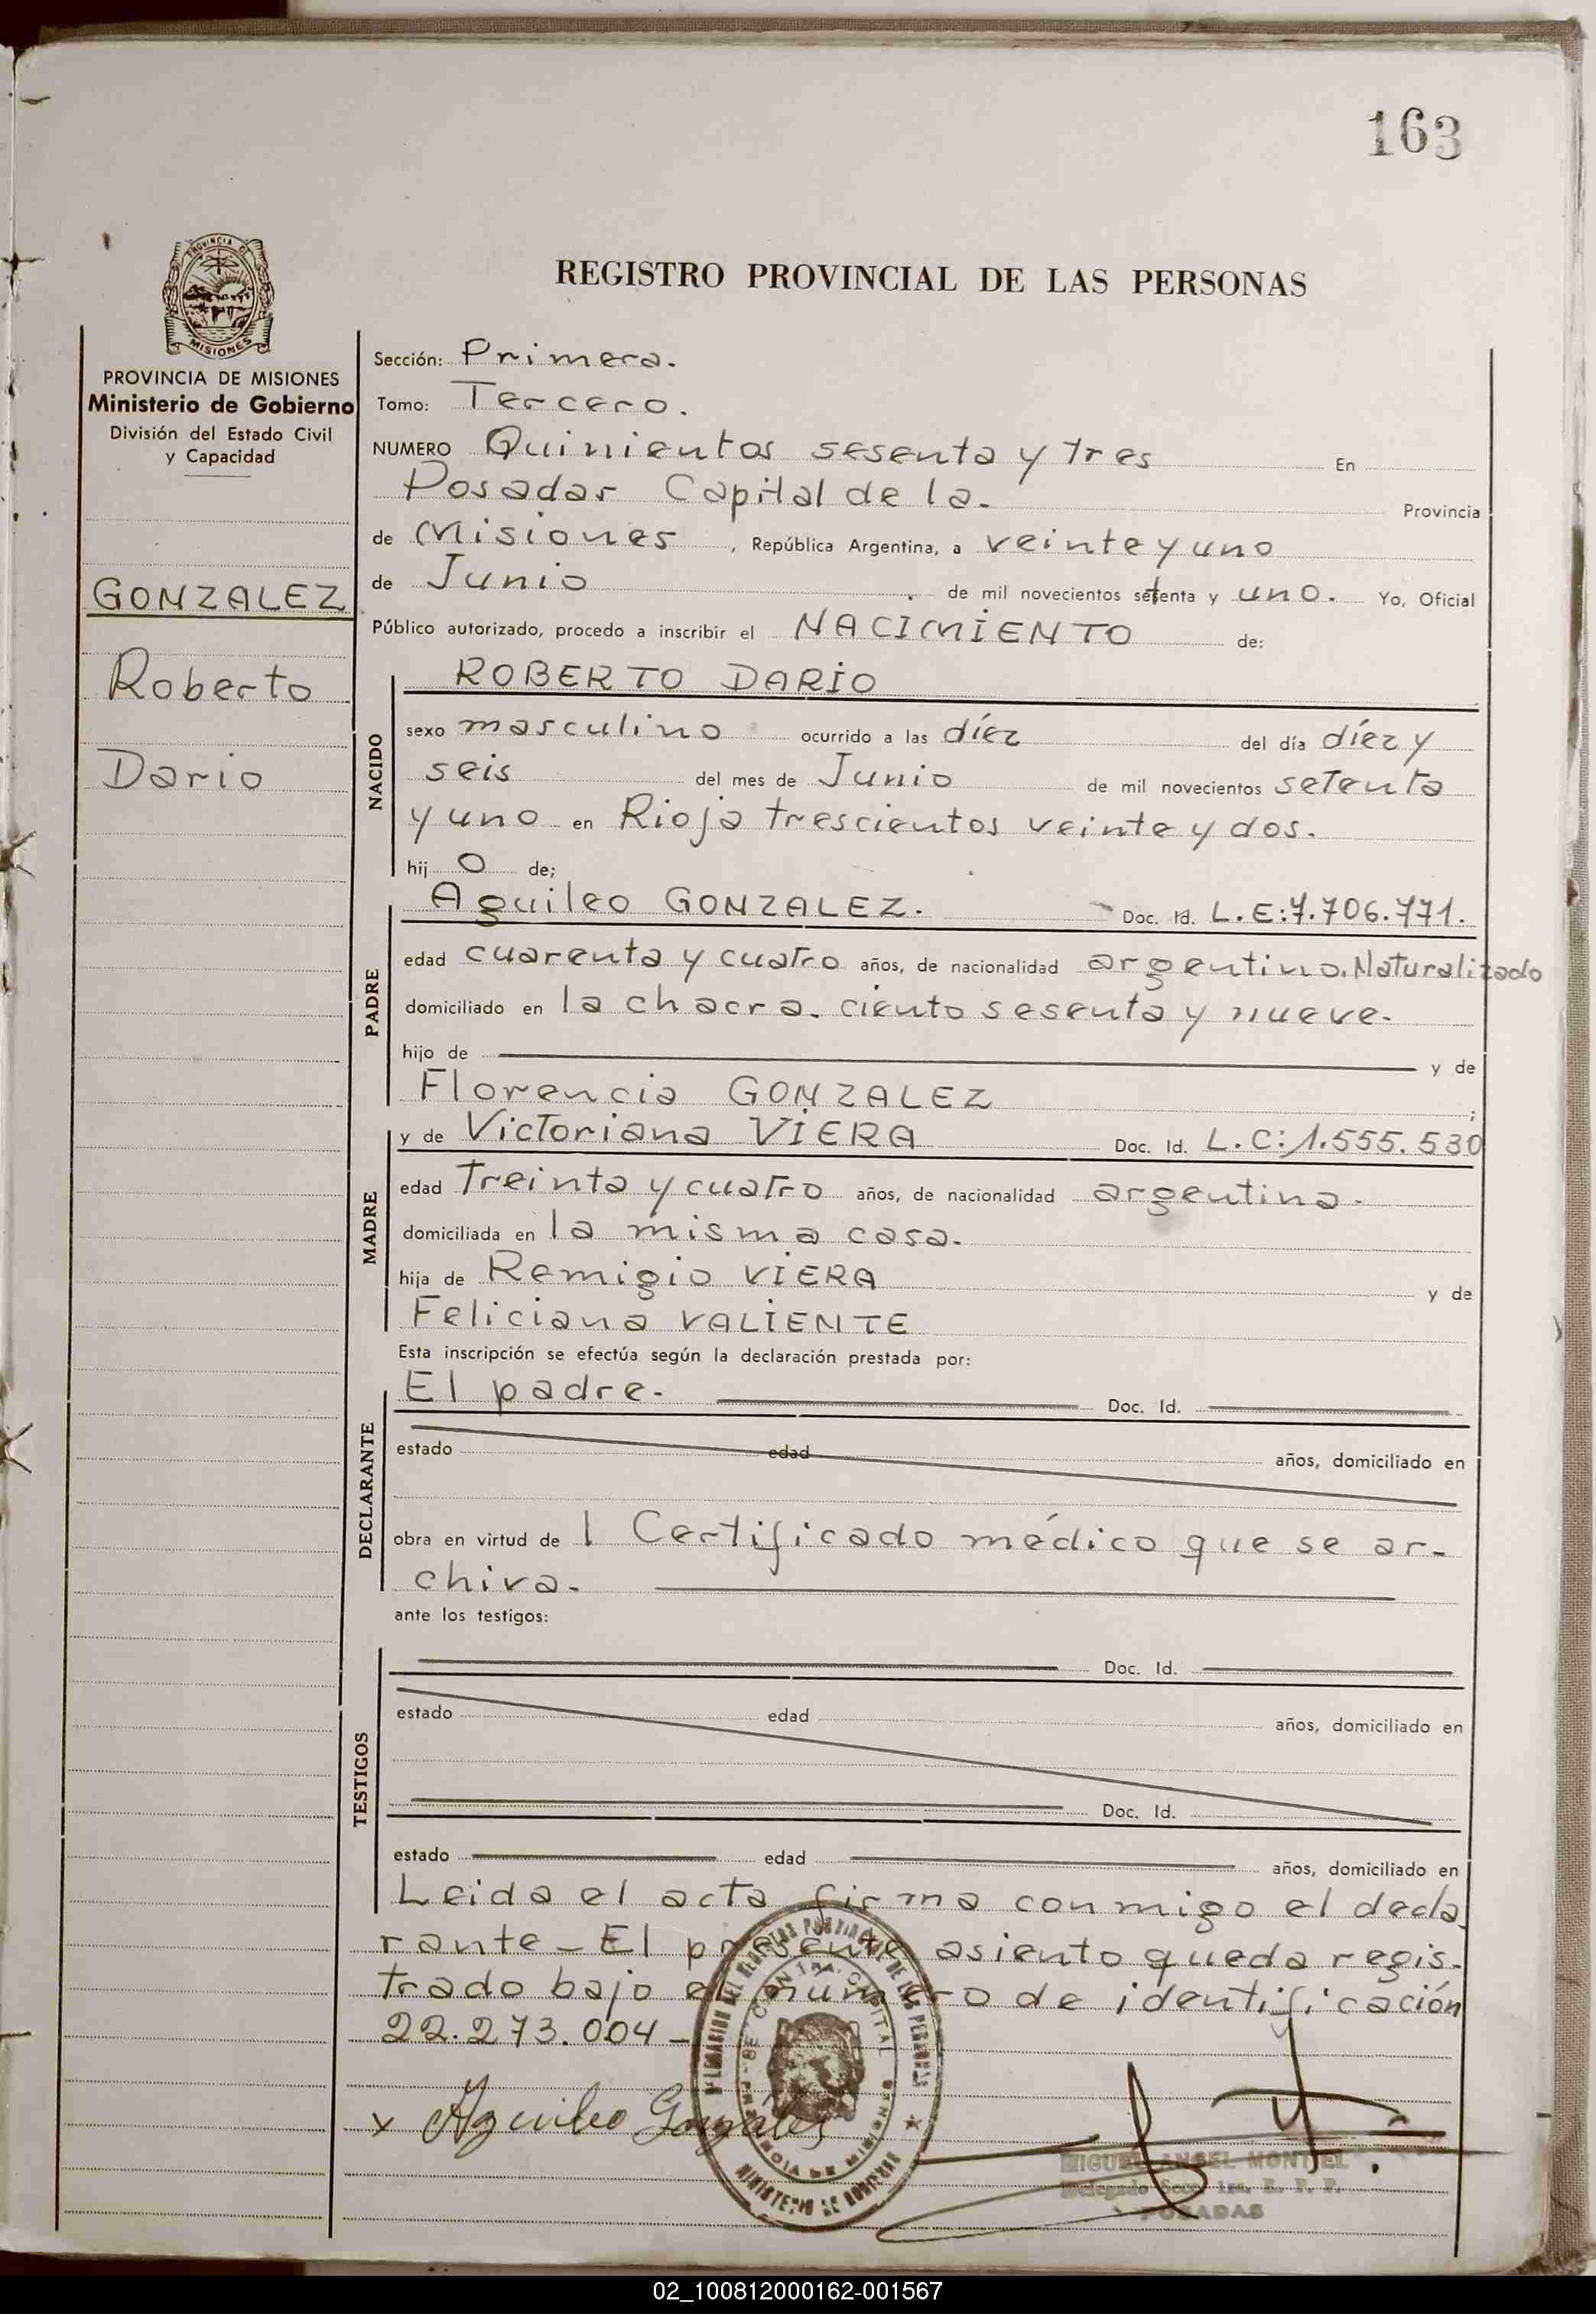 163
PROVINCIA DE
MISIONES
PROVINCIA DE MISIONES
Ministerio de Gobierno
División del Estado Civil
y Capacidad
GONZALEZ
Roberto
Dario
REGISTRO PROVINCIAL DE LAS PERSONAS
Sección: Primera.
Tomo: Tercero.
NUMERO Quinientos sesenta y tres En
Posadas Capital de la. Provincia
de Misiones, República Argentina, a veinte y uno
de Junio de mil novecientos setenta y uno. Yo, Oficial
Público autorizado, procedo a inscribir el NACIMIENTO de:
NACIDO
ROBERTO DARIO
sexo masculino ocurrido a las díez del día díez y
seis del mes de Junio de mil novecientos setenta
y uno en Rioja trescientos veinte y dos.
hij o de;
PADRE
Aguileo GONZALEZ. Doc. Id. L.E:7.706.771.
edad cuarenta y cuatro años, de nacionalidad argentino.Naturalizado
domiciliado en la chacra. ciento sesenta y nueve.
hijo de y de
Florencia GONZALEZ ;
MADRE
y de Victoriana VIERA Doc. Id. L.C:1.555.530
edad Treinta y cuatro años, de nacionalidad argentina.
domiciliada en la misma casa.
hija de Remigio VIERA y de
Feliciana VALIENTE
Esta inscripción se efectúa según la declaración prestada por:
DECLARANTE
El padre. Doc. Id.
estado edad años, domiciliado en
obra en virtud de 1 Certificado médico que se ar-
chiva.
ante los testigos:
TESTIGOS
Doc. Id.
estado edad años, domiciliado en
Doc. Id.
estado edad años, domiciliado en
Leida el acta firma conmigo el decla
rante - El presente asiento queda regis-
trado bajo el número de identificación
22.273.004 -
x Aguileo Gonzalez
MINISTERIO DE GOBIERNO
MIGUEL ANGEL MONTIEL
POSADAS
02_100812000162-001567